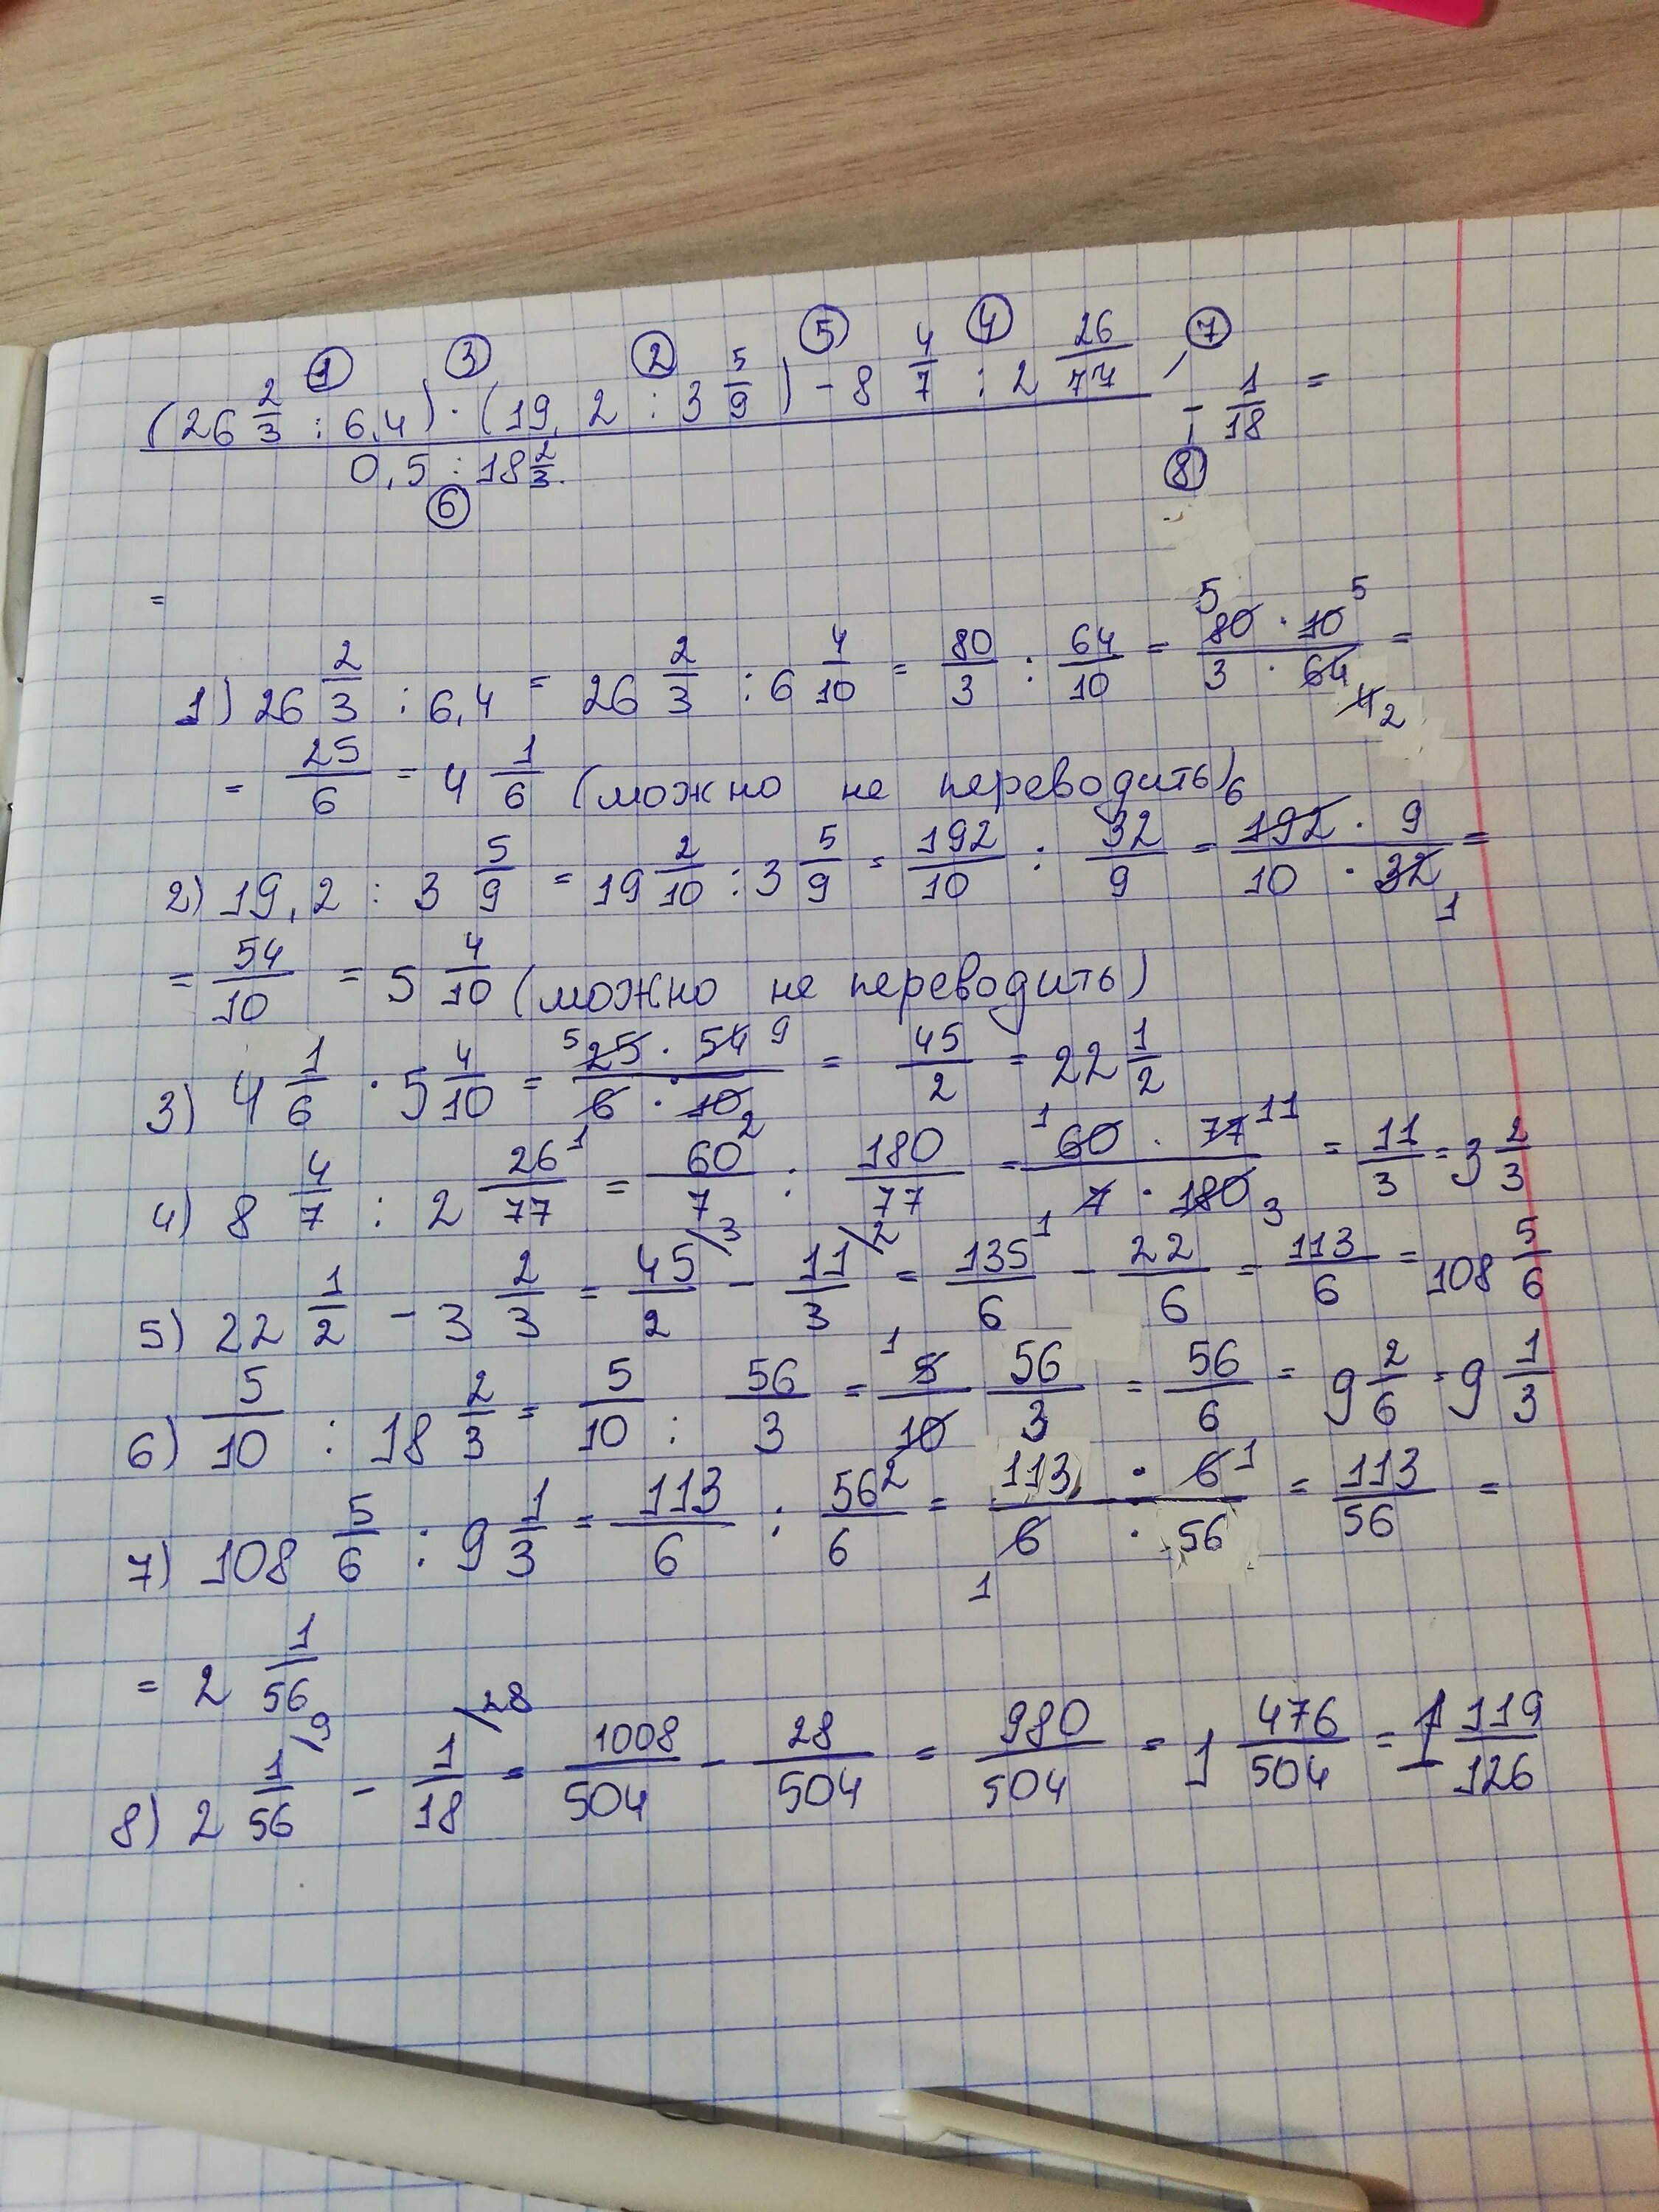 ① ③ ② ⑤ ④ ⑦
(26 2/3 : 6,4) · (19,2 : 3 5/9) - 8 4/7 : 2 26/77
- 1/18 =
0,5 : 18 2/3.
⑥ ⑧
=
1) 26 2/3 : 6,4 = 26 2/3 : 6 4/10 = 80/3 : 64/10 = 5 80 · 10 5 / 3 · 64 4 2 =
= 25/6 = 4 1/6 (можно не переводить)
2) 19,2 : 3 5/9 = 19 2/10 : 3 5/9 = 192/10 : 32/9 = 6 192 · 9 / 10 · 32 1 =
= 54/10 = 5 4/10 (можно не переводить)
3) 4 1/6 · 5 4/10 = 5 25 · 54 9 / 6 1 · 10 2 = 45/2 = 22 1/2
4) 8 4/7 : 2 26/77 = 60/7 : 180/77 = 1 60 · 77 11 / 1 7 · 180 3 = 11/3 = 3 2/3
5) 22 1/2 - 3 2/3 = 45/2 /3 - 11/3 /2 = 135/6 - 22/6 = 113/6 = 108 5/6
6) 5/10 : 18 2/3 = 5/10 : 56/3 = 1 5 / 10 2 56/3 = 56/6 = 9 2/6 = 9 1/3
7) 108 5/6 : 9 1/3 = 113/6 : 56/6 = 113 · 6 1 / 6 1 · 56 = 113/56 =
= 2 1/56
8) 2 1/56 /9 - 1/18 /28 = 1008/504 - 28/504 = 980/504 = 1 476/504 = 1 119/126